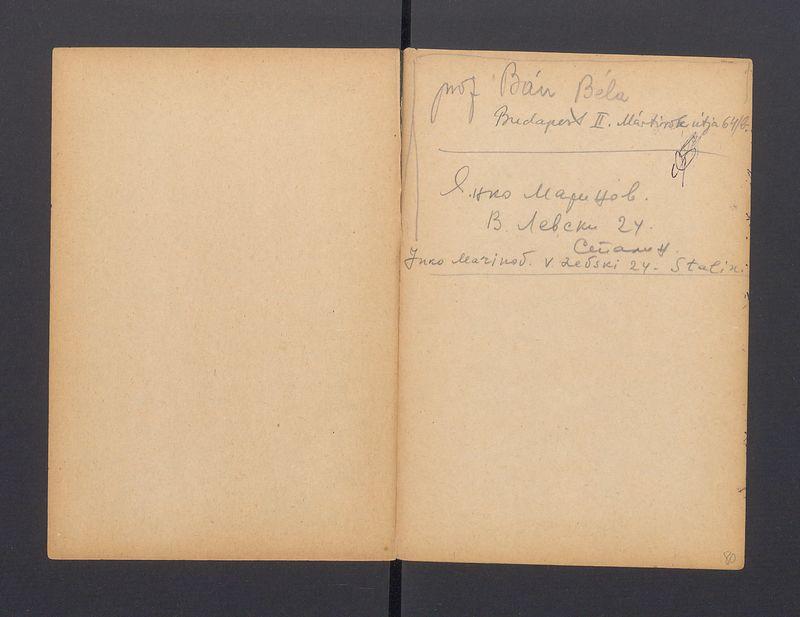 prof Bán Béla
Budapest II. Mártírok útja 64/b.
Янко Маринов.
В. Левски 24.
Сталин.
Jnko Marinov. V. Levski 24. Stalin.
80